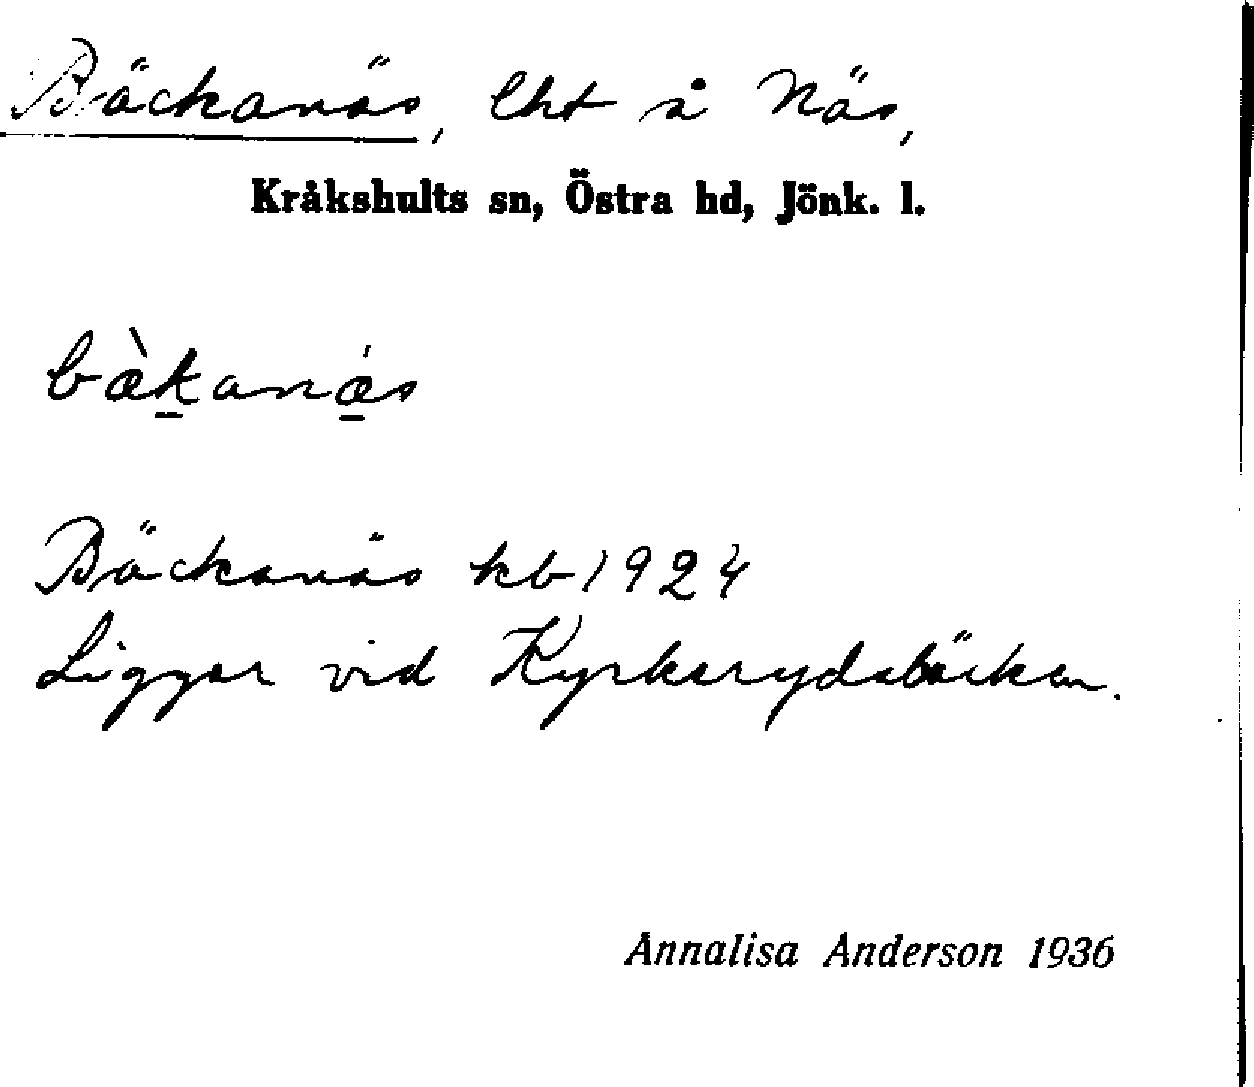 Bäckanäs, lht å Näs,
Kråkshults sn, Östra hd, Jönk. l.
bæ̀k̠anǽ̠s
Bäckanäs kb 1924
Ligger vid Kyrkerydsbäcken.
Annalisa Anderson 1936